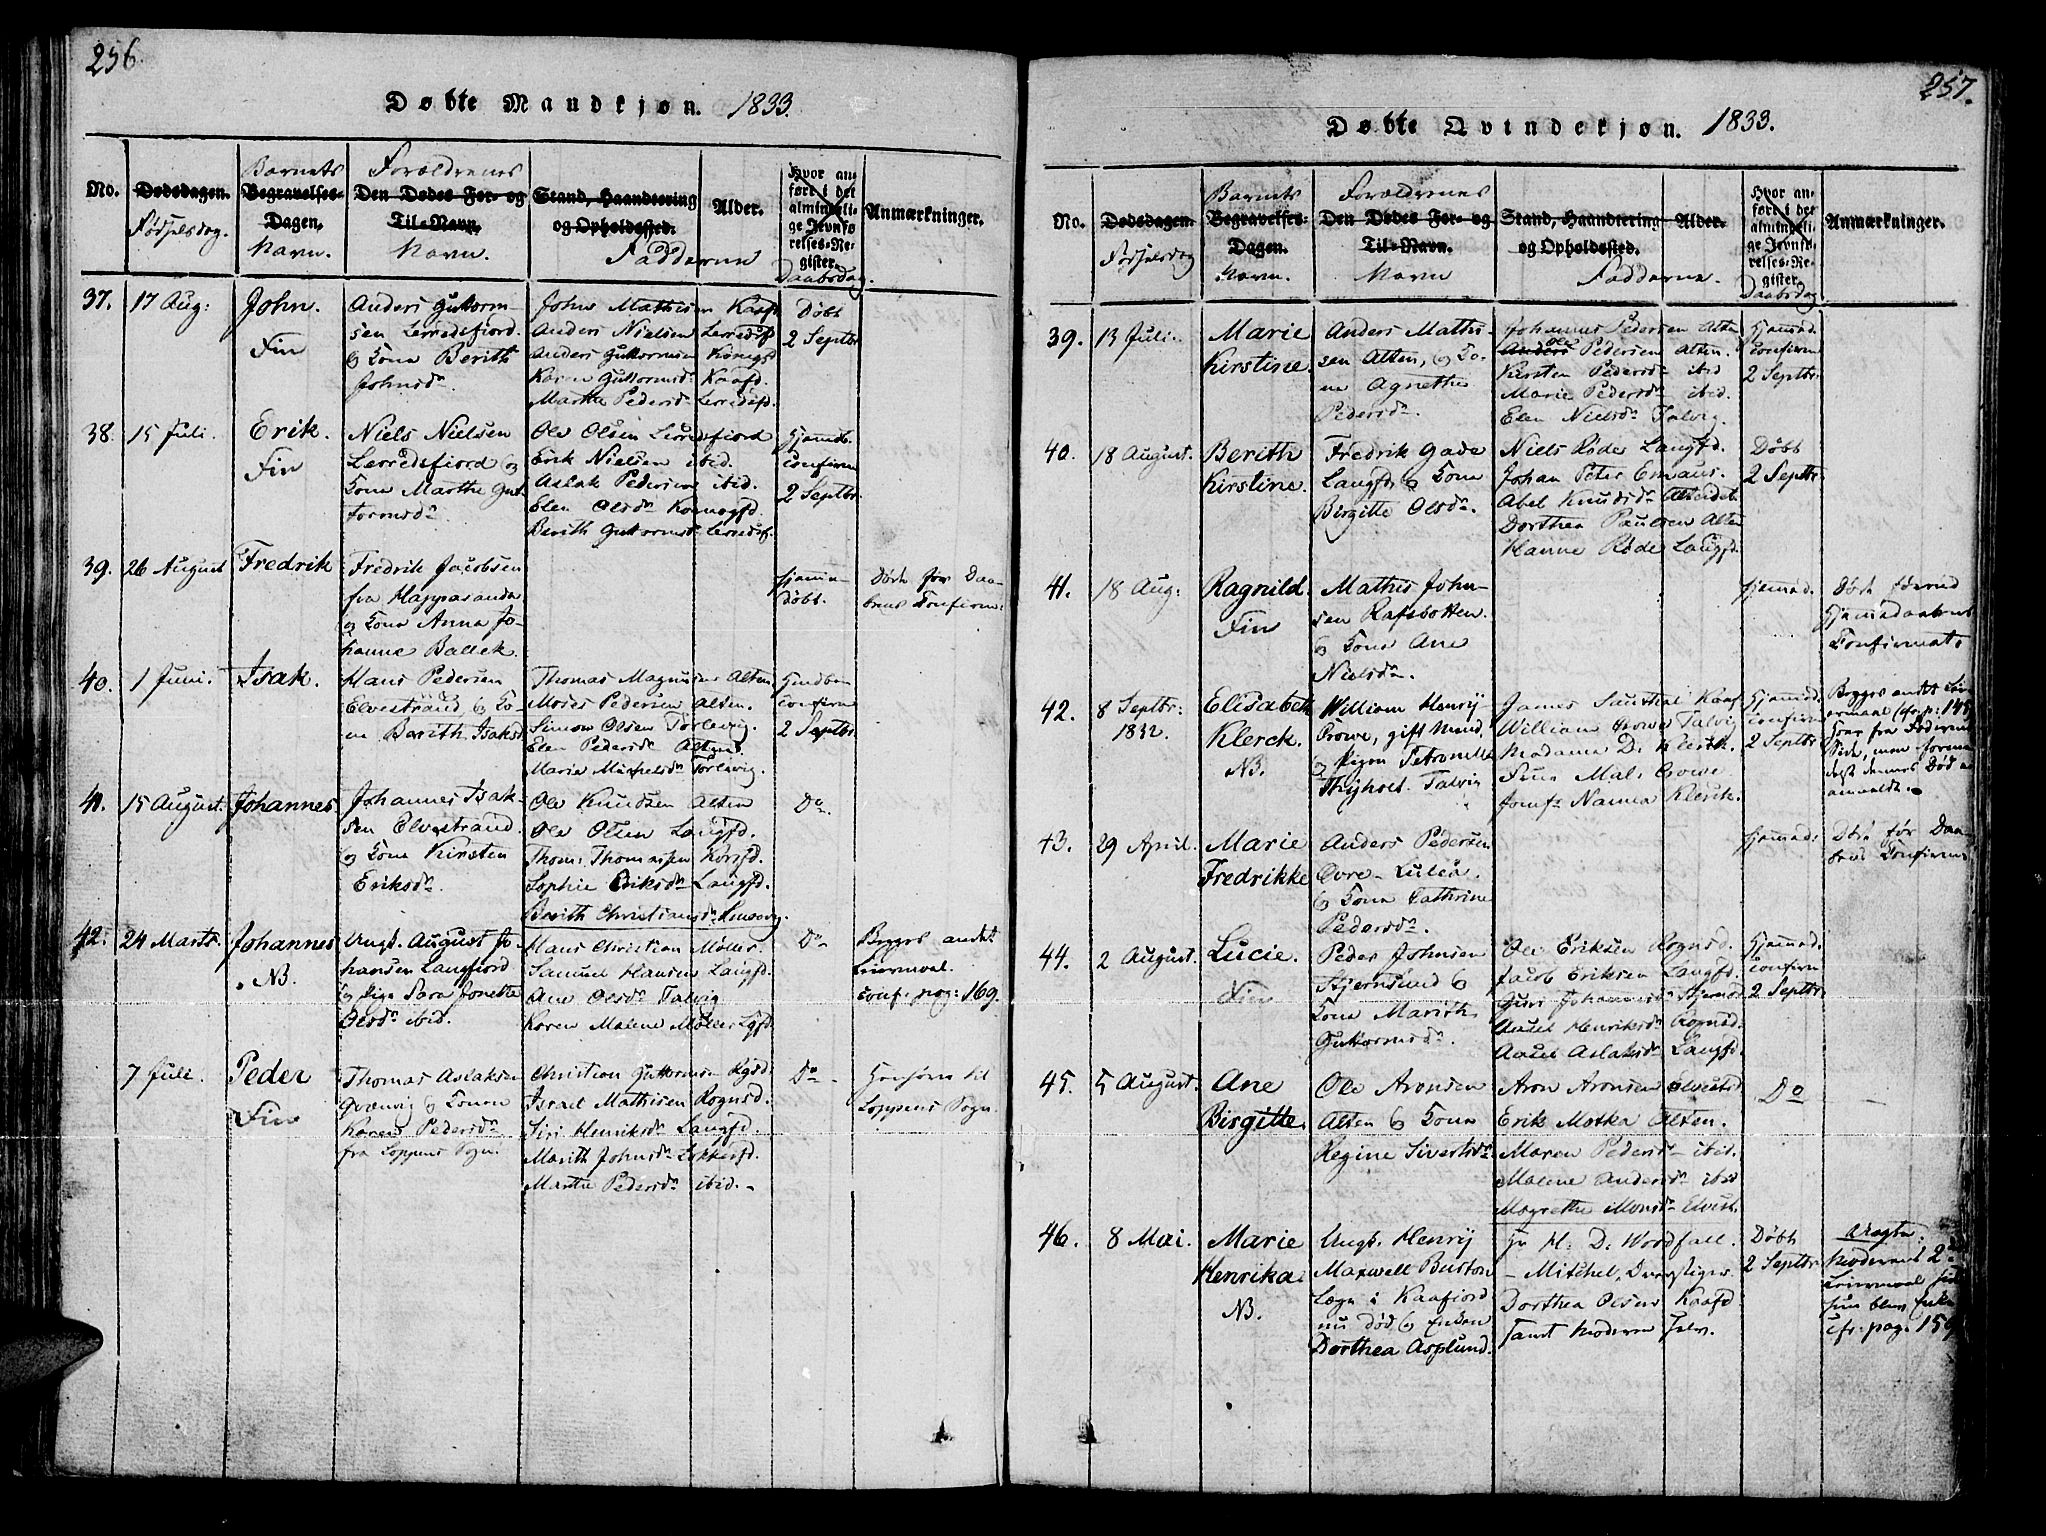 256.
Døbte Mandkjøn. 1833.
No.
Dødsdagen.
Fødselsdag.
Barnets
Begravelses-
Dagen.
Navn.
Forældrenes
Den Dødes For- og
Til-Navn.
Navn.
Stand, Haandtering
og Opholdssted.
Fadderne
Alder.
Hvor an-
ført i det
almindeli-
ge Jevnfø-
relses-Re-
gister.
Daabsdag.
Anmærkninger.
37.
17 Aug:
John.
Fin
Anders Guttorm-
sen Lerredsfiord.
og Kona Berith
Johnsdr.
John Mathisen Kaafd
Anders Nielsen Lerredsf
Anders Guttormsen
Karen Guttormsdr Kaafd.
Marthe Pedersdr Lerredsfd.
Døbt
2 Septbr
38.
15 Juli.
Erik.
Fin
Niels Nielsen
Lerredsfiord og
Kona Marthe Gut-
tormsdr.
Ole Olsen Lerredsfiord
Erik Nielsen ibid.
Aslak Pedersen ibid.
Elen Olsdr
Berith Guttormsdr Lerredsf.
Hjemdb.
confirm
2 Septbr.
39.
26 August
Fredrik
Fredrik Jacobsen
fra Happaranda
og Kona Anna Jo-
hanne Ballek.
hjemme-
døbt.
Døde før Daa-
bens Confirm:
40.
1 Juni.
Isak.
Hans Pedersen
Elvestrand, og Ko-
na Berith Isaksd
Thomas Magnusen Alten.
Moses Pedersen Alten.
Simon Olsen
Elen Pedersdr Alten.
Marie Mikkelsdr
confirm
2 Septbr
41.
15 August.
Johannes
Johannes Isak-
sen Elvestrand.
og Kona Kirsten
Eriksdr.
Ole Knudsen Alten
Ole Olsen Langfd.
Thom: Thomassen Korsfd.
Sophie Eriksdr Langfd.
Berith Christiansdr
Do
42.
24 Marts.
Johannes
NB.
Ungk. August Jo-
hansen Langfiord
og Pige Sara Jonette
Olsdr ibid.
Hans Christian Møller
Samuel Hansen Langfd.
Ane Olsdr Talvig
Karen Malene Møller Lgfd.
Do
Begges andet
Leiermaal.
conf: pag: 169.
7 Juli.
Peder
Fin
Thomas Aslaksen
Qvænvig og Konen
Karen Pedersdr
fra Loppens Sogn.
Christian Guttormsen Rgsd.
Israel Mathisen Rognsd.
Siri Henriksdr Langfd.
Marith Johnsdr
Marthe Pedersdr ibid.
Do
Henføres til
Loppens Sogn.
257.
Døbte Qvindekjøn. 1833.
No.
Dødsdagen.
Fødselsdag
Barnets
Begravelses-
Dagen.
Navn.
Forældrenes
Den Dødes For- og
Til-Navn.
Navn
Stand, Haandtering
og Opholdssted.
Fadderne.
Alder.
Hvor an-
ført i det
almindeli-
ge Jevnfø-
relses-Re-
gister.
Daabsdag
Anmærkninger.
39.
13 Juli.
Marie
Kirstine.
Anders Mathi-
sen Alten, og Ko-
na Agnethe
Pedersdr.
Johannes Pedersen Alten
Anders Ole Pedersen Alten.
Kirsten Pedersdr ibid
Marie Pedersdr ibid.
Elen Nielsdr Talvig.
Hjemmd.
confirm
2 Septbr:
40.
18 August.
Berith
Kirstine.
Fredrik Gade
Langfd og Kona
Birgitte Olsdr.
Niels Røder Langfd.
Johan Peter Emaus.
Abel Knudsdr Alteidet
Dorthea Paulsen Alten
Hanne Røde Langfd.
Døbt
2 Septbr
41.
18 Aug:
Ragnild.
Fin
Mathis John-
sen Rafsbotten.
og Kona Ane
Nielsdr.
Hjemmd.
Døde førend
Hjemmedaabens
Confirmat.
42.
8 Septbr:
1832.
Elisabeth
Klerck.
NB.
William Henrÿ
Crowe, gift Mand,
og Pigen Petronelle
Thÿholt. Talvig
James Lauthal Kaaf
William Crowe Talvig
Madame D. Klerck.
Jens Mal: Crowe
Jomf. Nanna Klerck.
Hjemmd.
confirm
2 Septbr:
Begges andet Lei-
ermaal (cfr. p: 145
Hoer fra Faderens
Side, men formo-
dest dennes Død
anmeldt.
43.
29 April.
Marie
Fredrikke
Anders Pedersen
Øvre-Luleå.
og Kona Cathrine
Pedersdr.
Hjemmd:
Døde før Daa-
bens Confirm
44.
2 August.
Lucie.
Fin
Peder Johnsen
Stjernsund og
Kona Marith
Guttormsdr.
Ole Eriksen Rognsd.
Jacob Eriksen Langfd.
Guri Johannesdr Stjernsd
Aasel Henriksdr Rognsd.
Aasel Aslaksdr Langfd.
Hjemmd.
confirm
2 Septbr:
45.
5 August.
Ane
Birgitte.
Ole Aronsen
Alten og Kona
Regine Sivertsdr
Aron Aronsen Elvestrd
Erik Motka Alten.
Maren Pedersdr ibid.
Malene Andersdr ibid
Magrethe Monsdr Elvest.
Do
46.
8 Mai.
Marie
Henrika.
NB.
Ungk. Henrÿ
Maxwell Burton
Læge i Kaafiord
nu død og Enken
Dorthea Asplund.
Hr H: D: Woodfall.
- Mitchel,
Dorthea Olsen Kaafd.
samt Moderen selv.
Døbt
2 Septbr
Uægte:
Moderens 2det
Leiermaal siden
hun blev Enke
cfr. pag: 159